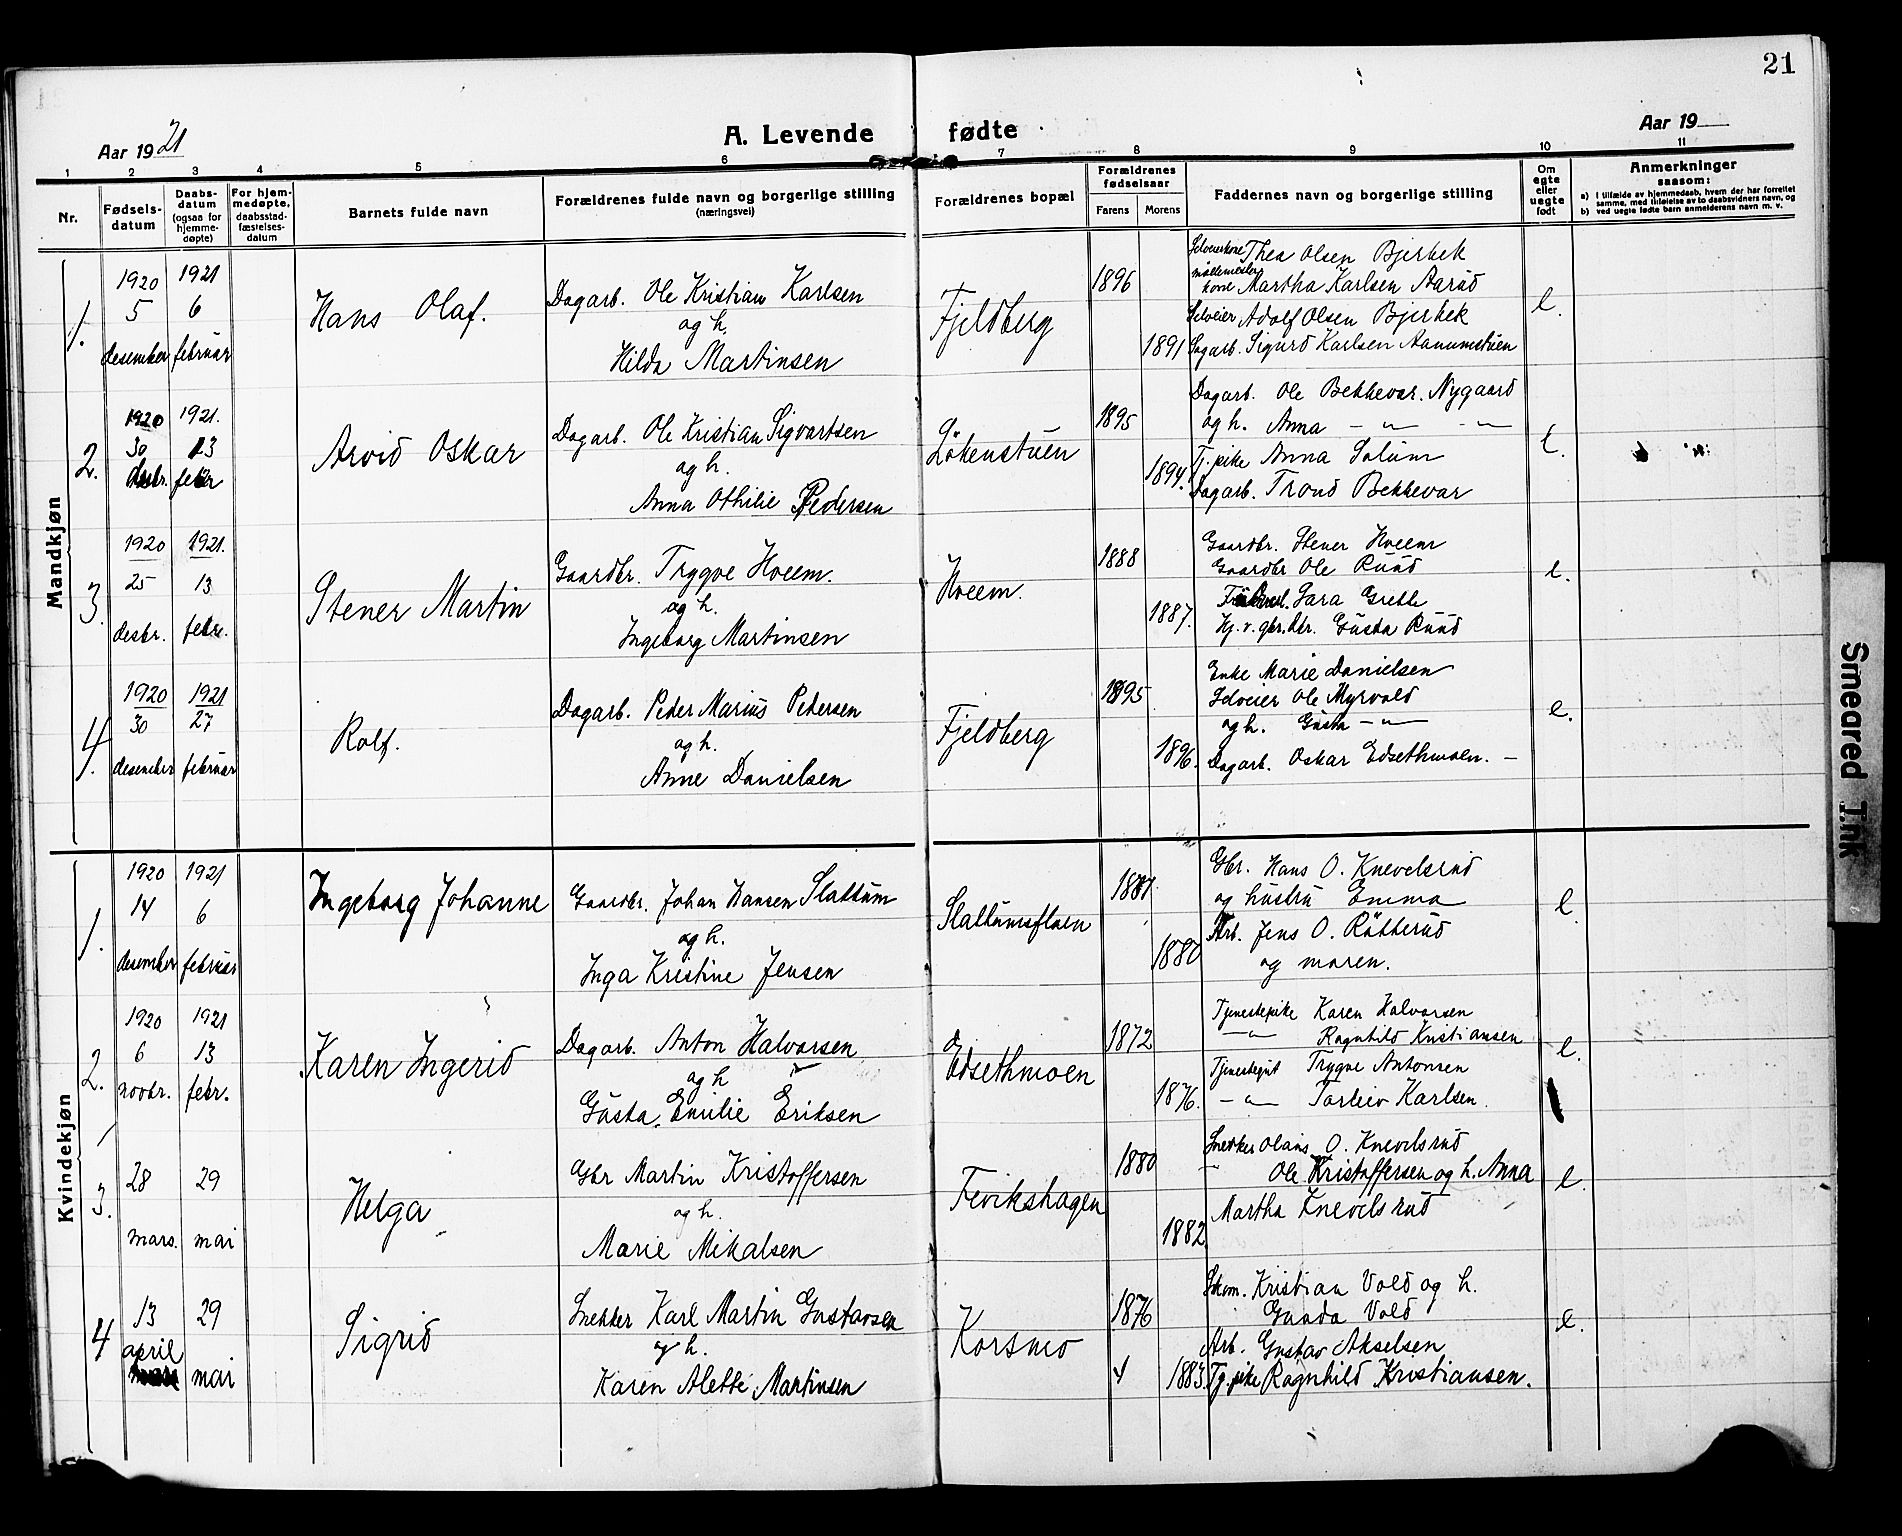 21
Aar 1921
A. Levende fødte
Aar 19
1 2 3 4 5 6 7 8 9 10 11
Nr.
Fødsels-
datum
Daabs-
datum
(ogsaa for
hjemme-
døpte)
For hjem-
medøpte,
daabsstad-
fæstelses-
datum
Barnets fulde navn
Forældrenes fulde navn og borgerlige stilling
(næringsvei)
Forældrenes bopæl
Forældrenes
fødselsaar
Farens Morens
Faddernes navn og borgerlige stilling
Om
egte
eller
uegte
født
Anmerkninger
saasom:
a) I tilfælde av hjemmedaab, hvem der har forrettet
samme, med tilføielse av to daabsvidners navn, og
b) ved uegte fødte barn anmelderens navn m. v.
Mandkjøn
1.
1920
5
desember
1921
6
februar
Hans Olaf.
Dagarb. Ole Kristian Karlsen
og h.
Hilda Martinsen
Fjeldberg
1896
1891
Selveierkone Thea Olsen Bjerkek
kone Martha Karlsen Aarud
Selveier Adolf Olsen Bjerkek
Dagarb. Sigurd Karlsen Aanumstuen
e.
2.
1920
30
desbr.
1921.
13
febr
Arvid Oskar
Dagarb. Ole Kristian Sigvartsen
og h.
Anna Othilie Pedersen
Løkenstuen
1895
1894.
Dagarb. Ole Bekkevar. Nygaard
og h. Anna — " — — " —
Tj. pike Anna Solum
Dagarb. Trond Bekkevar
e.
3.
1920
25
desbr.
1921.
13
febr.
Stener Martin
Gaardbr. Trygve Hveem.
og h.
Ingeborg Martinsen
Hveem.
1888
1887.
Gaardbr. Stener Hveem
Gaardbr Ole Ruud
Sara Grette
Hj. v. gbr. dtr. Gusta Ruud
e.
4.
1920
30
desember
1921
27
februar
Rolf.
Dagarb. Peder Marius Pedersen
og h.
Anne Danielsen
Fjeldberg
1895
1896.
Enke Marie Danielsen
Selveier Ole Myrvold
og h. Gusta — " —
Dagarb. Oskar Edsethmoen. —
e.
Kvindekjøn
1.
1920
14
desember
1921
6
februar
Ingeborg Johanne
Gaardbr. Johan Hansen Slattum
og h.
Inga Kristine Jensen
Slattumsfloen
1881
1880
Gbr. Hans O. Knevelsrud
og hustru Emma
Arb. Jens O. Røtterud
og maren.
e.
2.
1920
6
novbr.
1921
13
febr.
Karen Ingerid
Dagarb. Anton Halvorsen
og h
Gusta Emilie Eriksen
Edsethmoen
1872
1876.
Tjenestepike Karen Halvorsen
— " — Ragnhild Kristiansen
Tjenestegut Trygve Antonsen
— " — Torleiv Karlsen.
e.
3.
28
mars.
29
mai
Helga
Gbr Martin Kristoffersen
og h.
Marie Mikalsen
Fevikshagen
1880
1882
Snekker Olaus O. Knevelsrud
Ole Kristoffersen og h. Anna
Martha Knevelsrud
e.
4
13
april
29
mai
Sigrid
Snekker Karl Martin Gustavsen
og h.
Karen Alette Martinsen
Korsmo
1876
4 1883
Skom. Kristian Vold og h.
Gunda Vold
Arb. Gustav Akselsen
Tj. pike Ragnhild Kristiansen.
e.
Smeared Ink